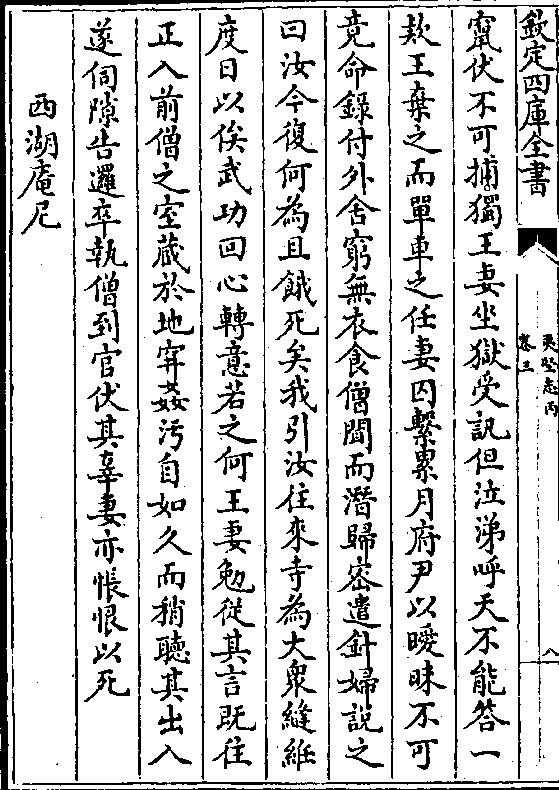 欽定四庫全書
夷堅志丙
卷三
八
竄伏不可捕獨王妻坐獄受訊但泣涕呼天不能答一
欵王棄之而單車之任妻囚繫累月府尹以曖昧不可
竟命錄付外舍窮無衣食僧聞而潛歸密遣針婦說之
曰汝今復何為且餓死矣我引汝往來寺為大衆縫紝
度日以俟武功回心轉意若之何王妻勉從其言既往
正入前僧之室藏於地穽姦污自如久而稍聽其出入
遂伺隙告邏卒執僧到官伏其辜妻亦悵恨以死
西湖庵尼